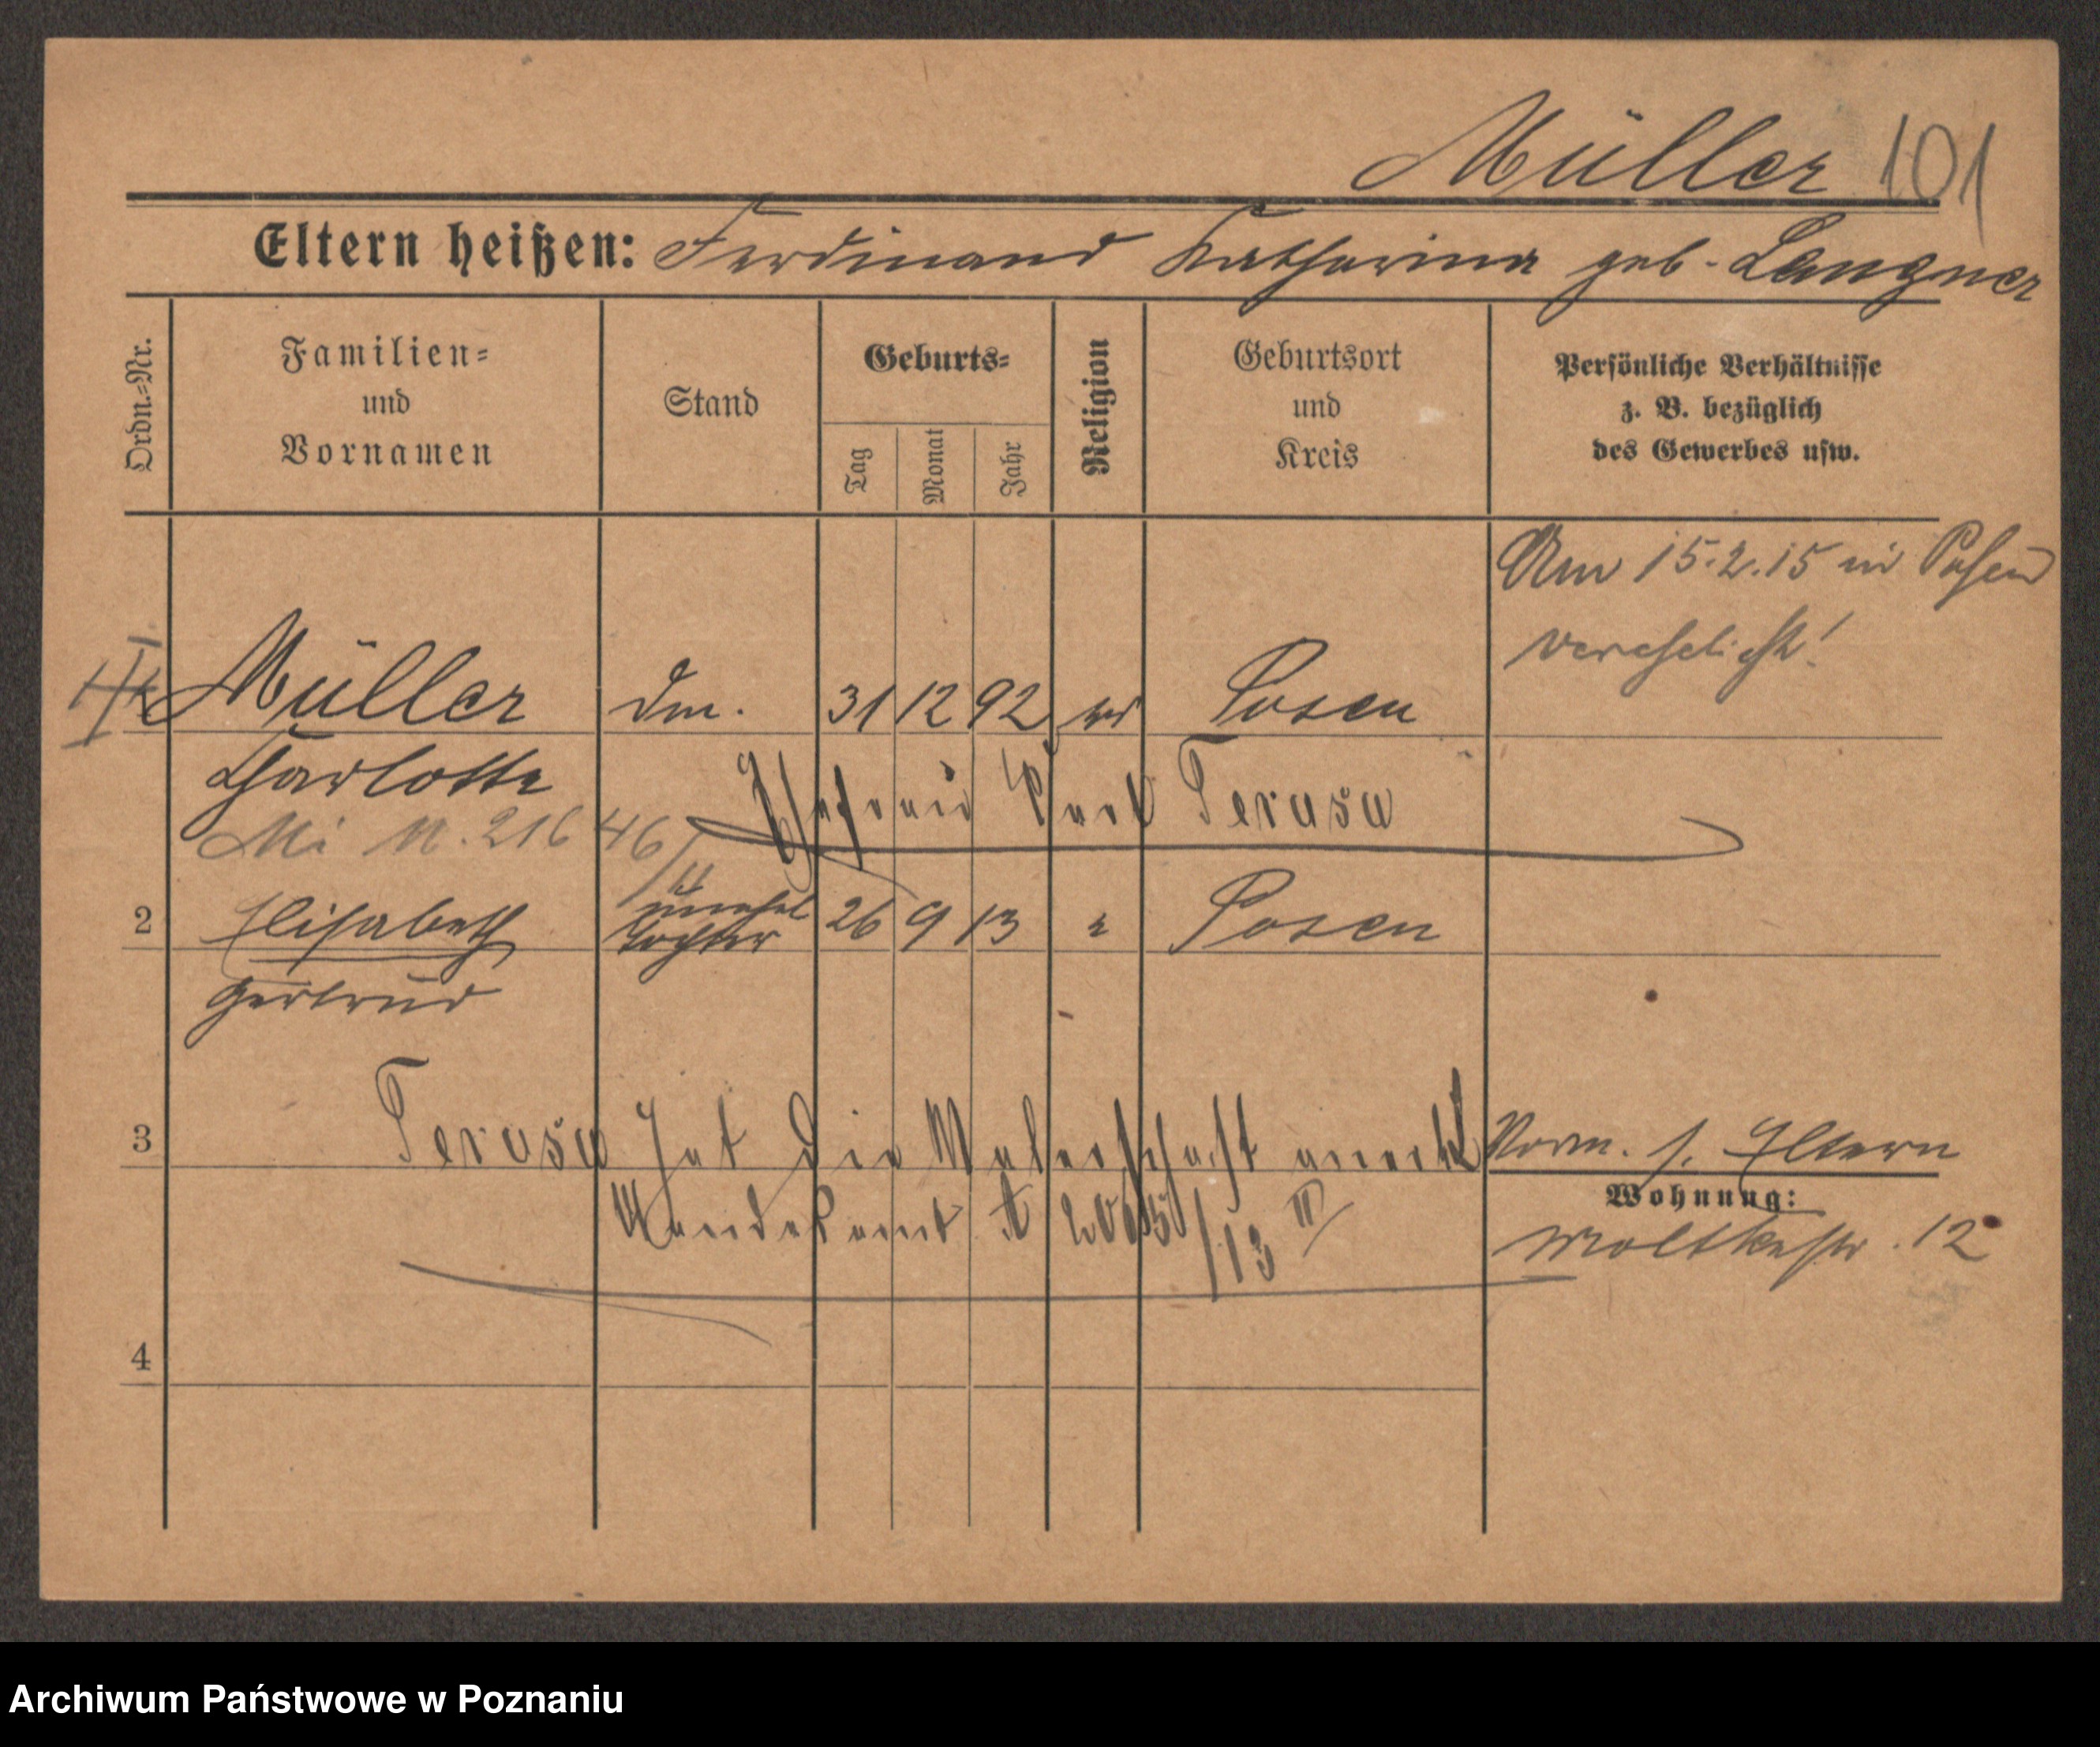 Müller 101
Eltern heißen: Ferdinand Katharina geb. Langner
Ordn.=Nr.
Familien=
und
Vornamen
Stand
Geburts=
Tag
Monat
Jahr
Religion
Geburtsort
und
Kreis
Persönliche Verhältnisse
z. B. bezüglich
des Gewerbes usw.
Am 15.2.15 in Posen
verehelicht!
Müller 31 12 92 Posen
Charlotte
Ehefrau Karl Terusa
Mi N. 216 46
2 Elisabeth unehel Tochter 26 9 13 Posen
Gertrud
3 Terusa hat die
Vorm. s. Eltern
Wohnung:
Moltkestr. 12
/13 II
4
Archiwum Państwowe w Poznaniu